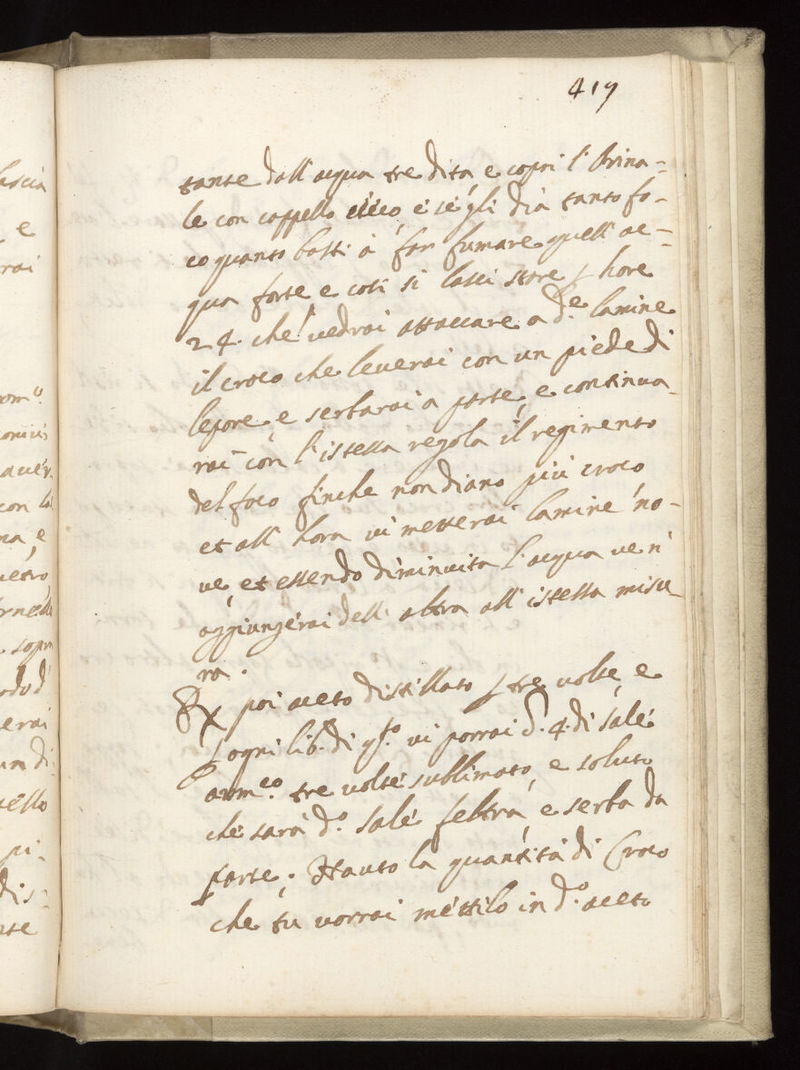 419
tante dall' acqua tre dita e copri l' Orina-
le con cappello cieco, e se gli dia tanto fo-
co quanto basti à far fumare quell' ac-
qua forte e così si lasci stare p hore
24. che vedrai attaccare a d.e lamine
il croco che leverai con un piede di
lepore e serbarai a parte, e continua-
rai con l' istessa regola il regimento
del foco finche non diano più croco
et all' hora vi metterai lamine no-
ve, et essendo diminuita l' acqua ve n'
aggiungerai dell' altra all' istessa misu-
ra.
℞ poi aceto distillato p tre volte, e
p ogni lib.a di q.to vi porrai d. 4. di sale
arm.co tre volte sublimato, e soluto
che sarà d.o sale feltra, e serba da
parte; Hauto la quantità di Croco
che tu vorrai mettilo in d.o aceto
lascia
e
rai
con la
na, e
vetro
sopra
erai
un di
uello
pi-
dis-